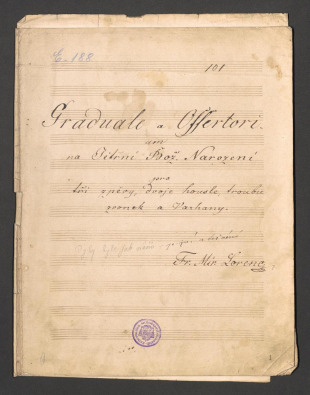 č. 188
101
Graduale a Offertori
na Jitřní Bož. Narození
pro
tři zpěvy, dvoje housle, troubu
zvonek a Varhany.
Fr. Mir. Lorenc